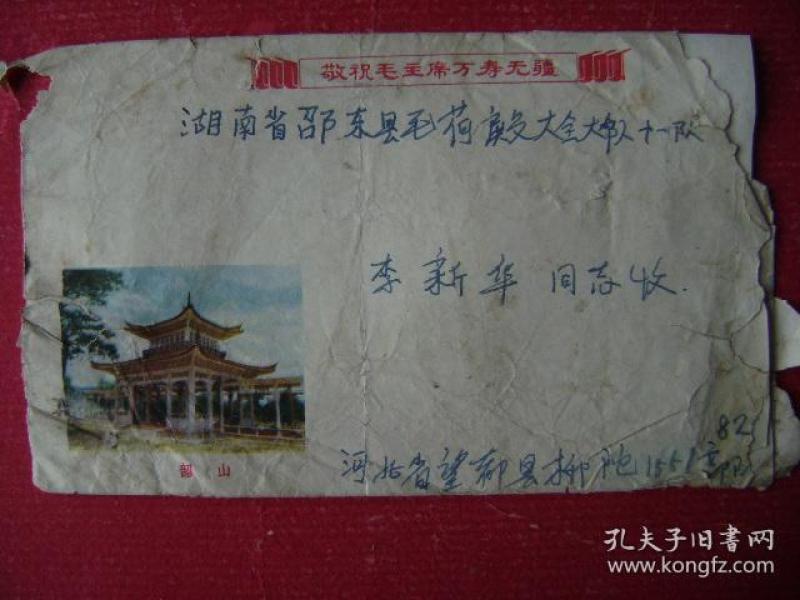 敬祝毛主席万寿无疆
湖南省邵东县毛荷殿大全大队十一队
李新华 同志收.
韶山
82
河北省望都县柳陀1551部队
孔夫子旧书网
www.kongfz.com